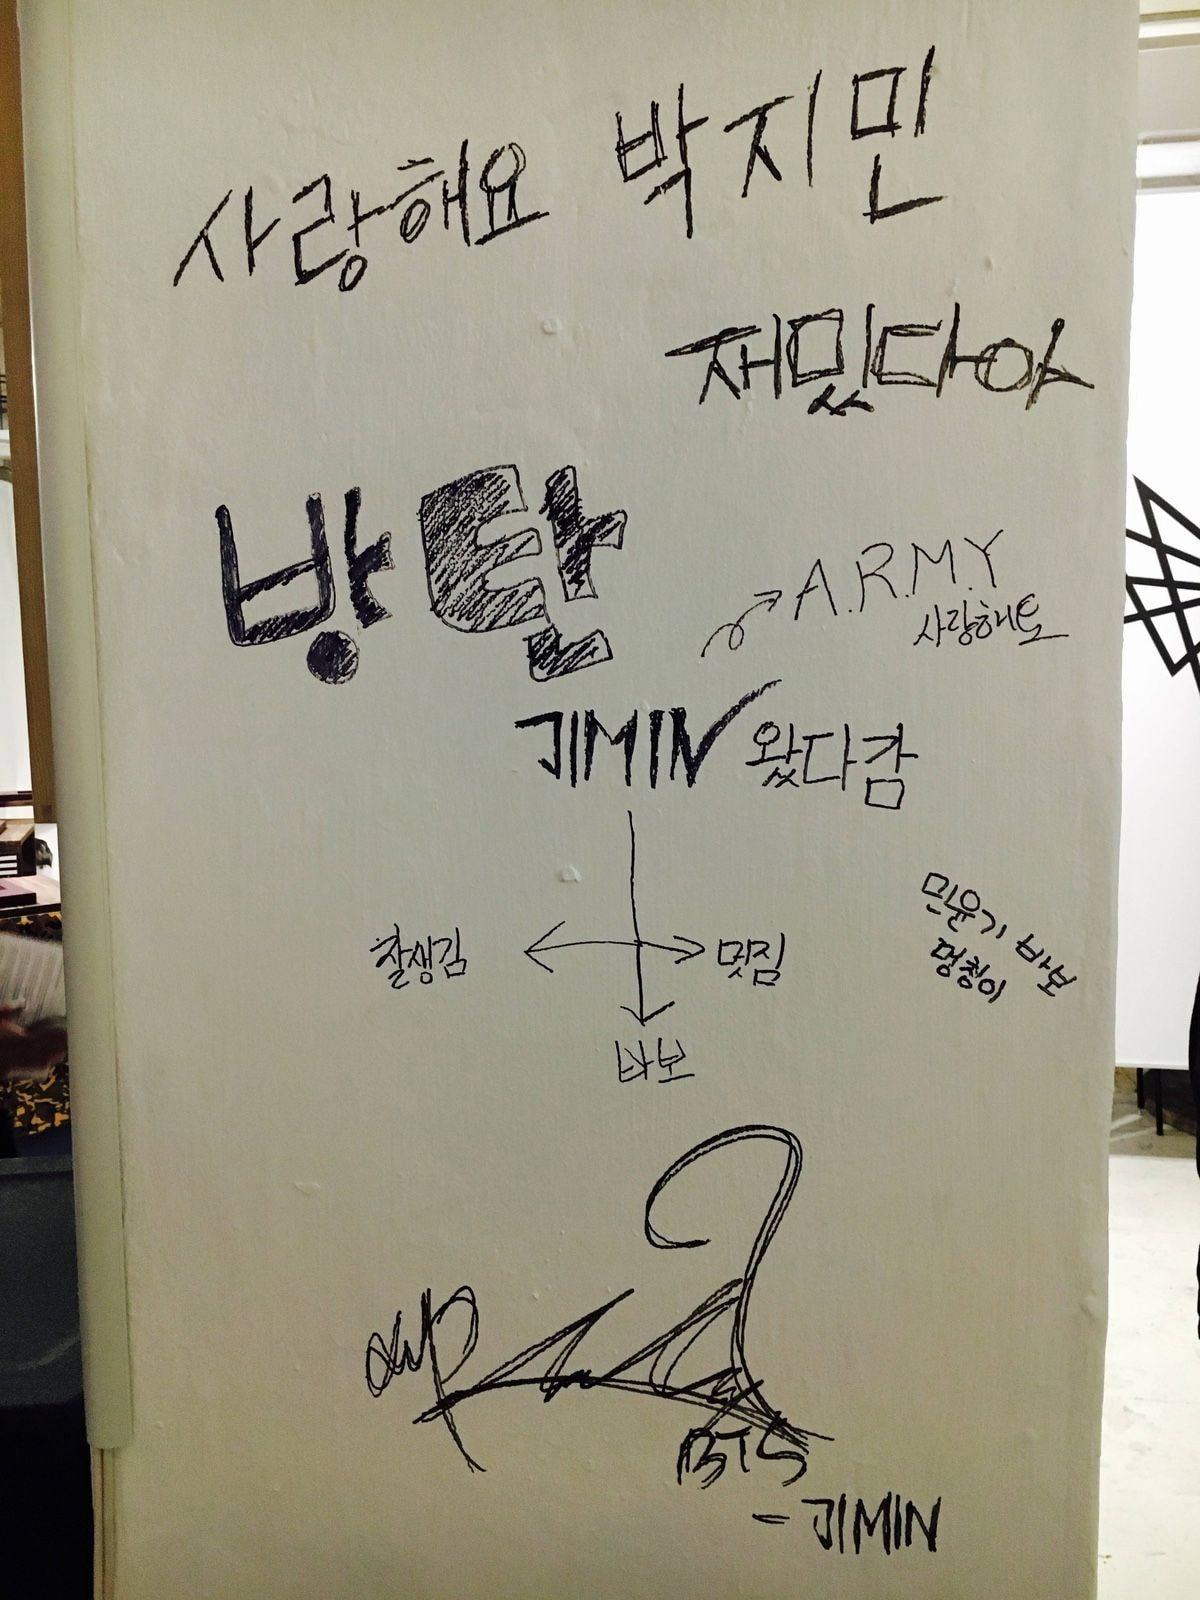 사랑해요 박지민
재밌다아
방탄
A.R.M.Y
사랑해효
JIMIN 왔다감
잘생김
멋짐
바보
민윤기 바보
멍청이
BTS
- JIMIN